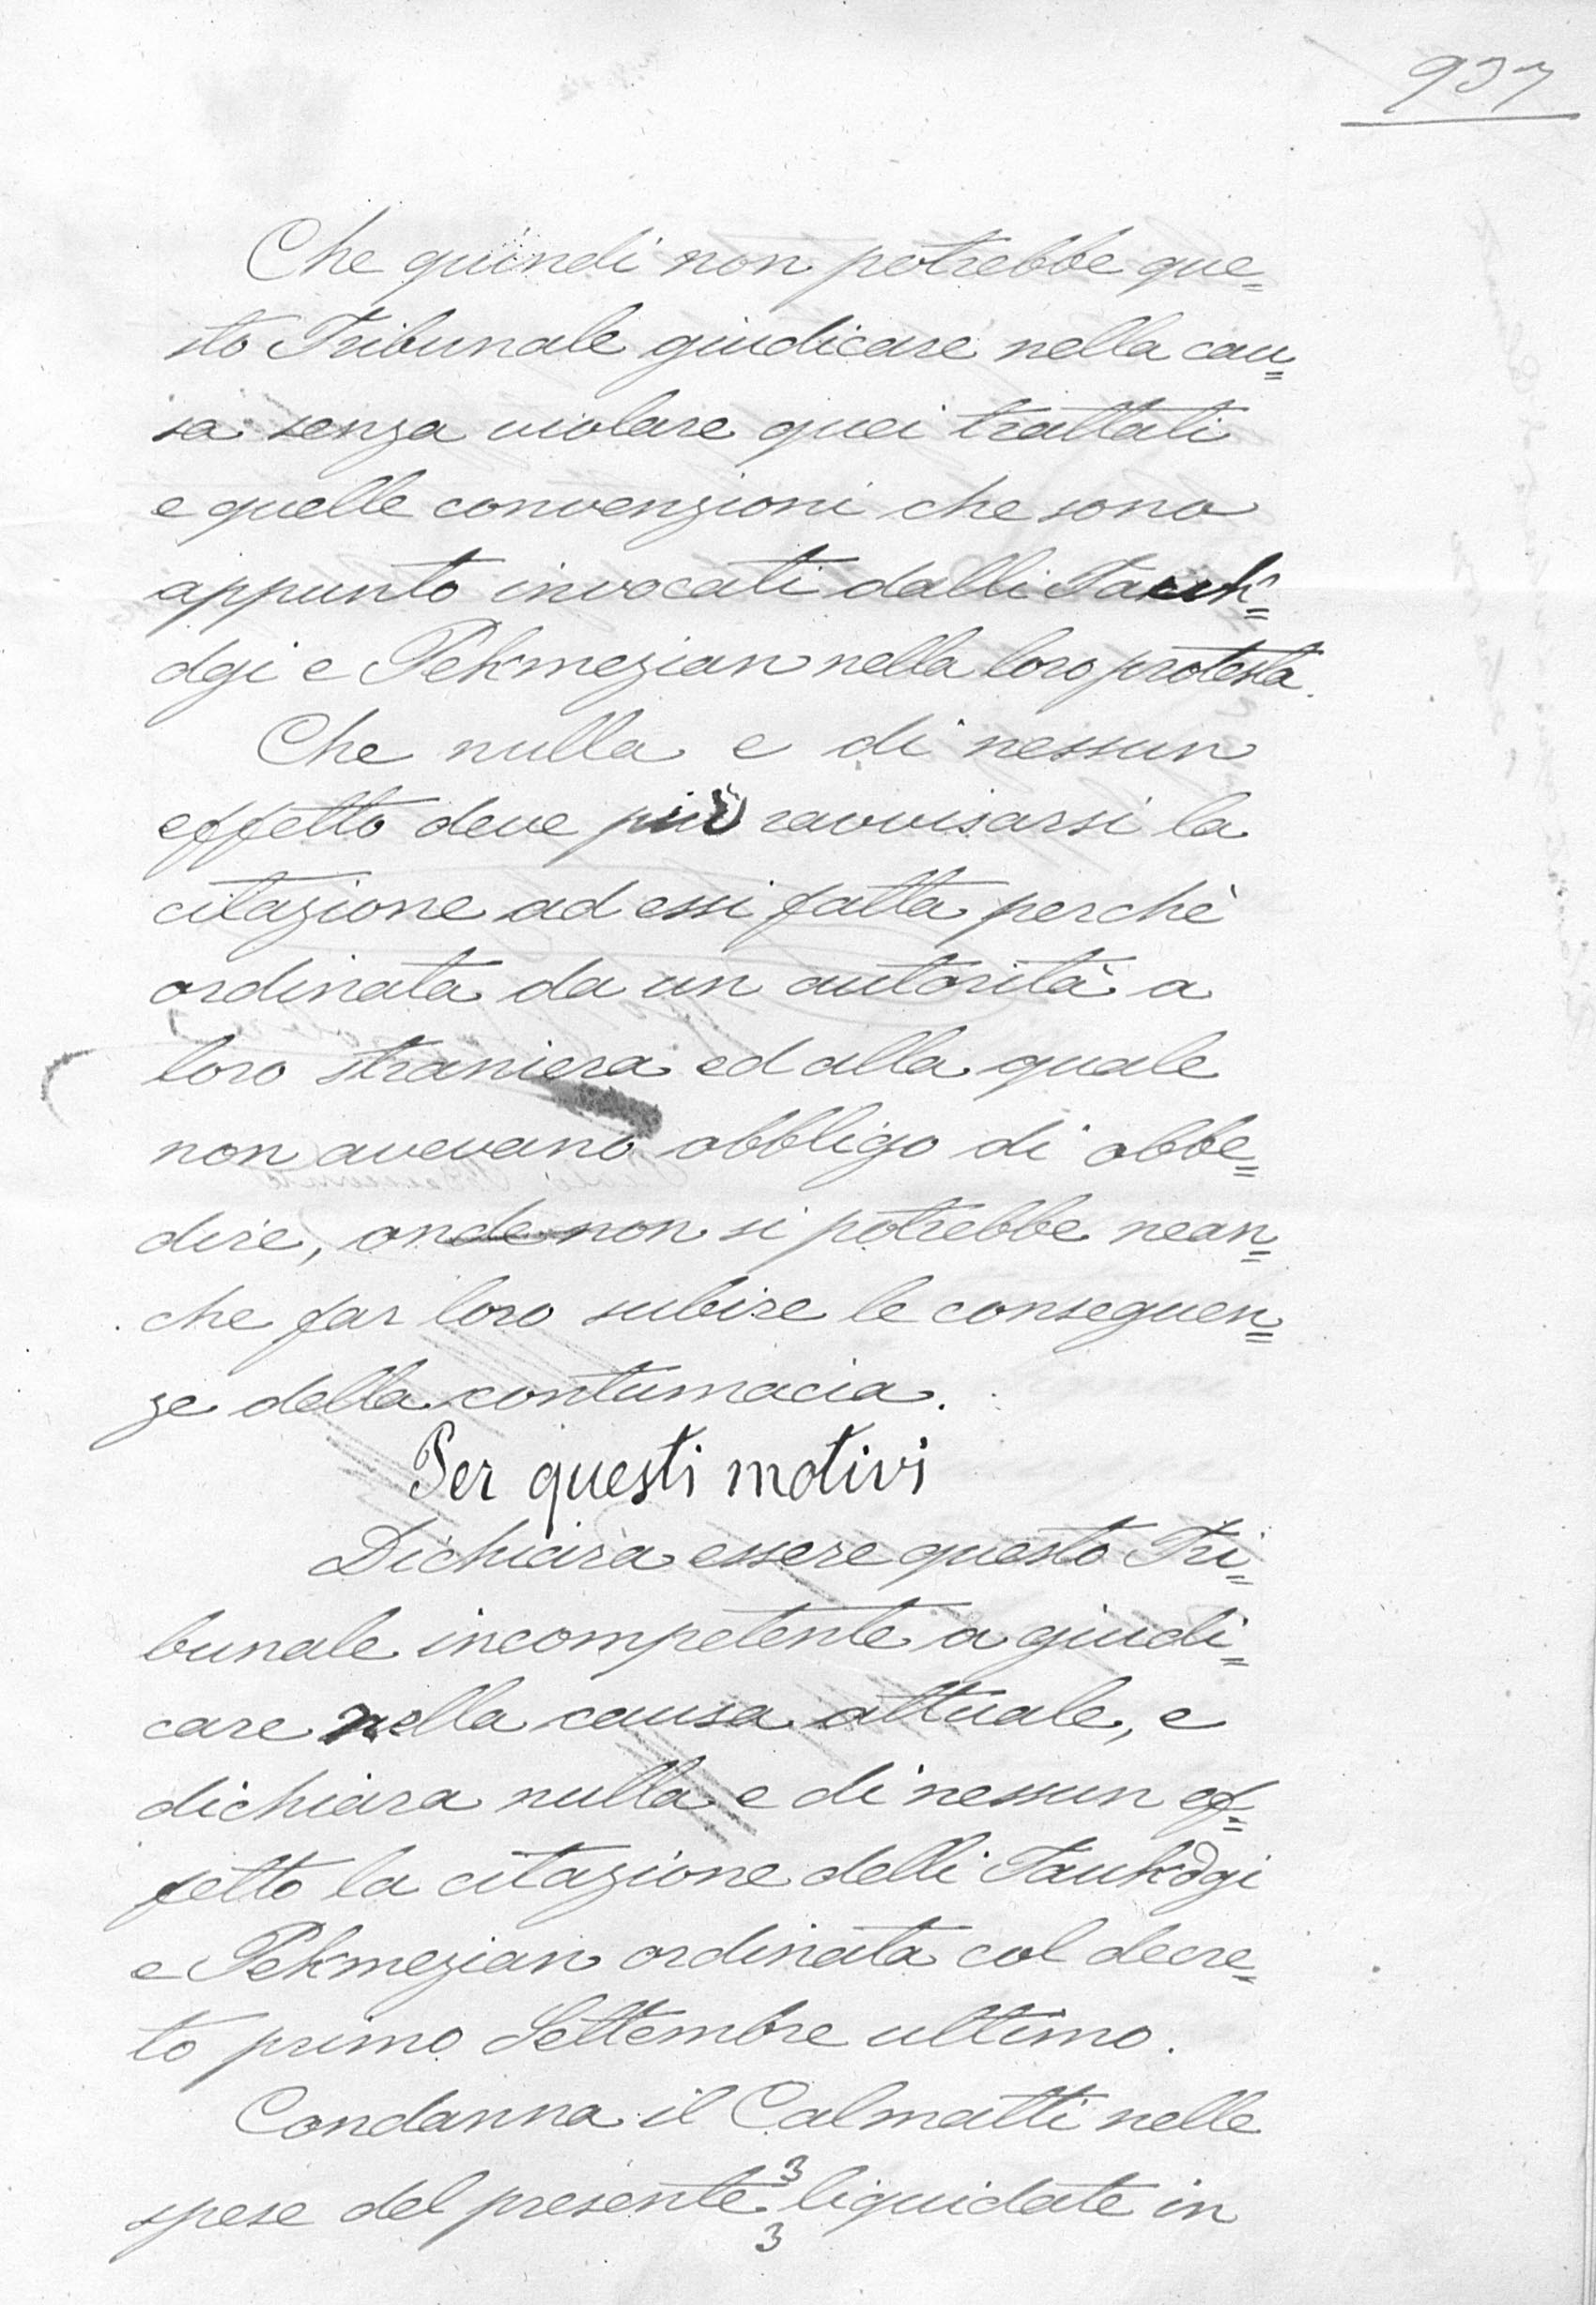 937
Che quindi non potrebbe que=
sto Tribunale giudicare nella cau=
sa senza violare quei trattati
e quelle convenzioni che sono
appunto invocati dalli Tauk=
dgi e Pekmezian nella loro protesta.
Che nulla e di nessun
effetto deve più ravvisarsi la
citazione ad essi fatta perchè
ordinata da un autorità a
loro straniera ed alla quale
non avevano obbligo di obbe=
dire, onde non si potrebbe nean=
che far loro subire le conseguen=
ze della contumacia.
Per questi motivi
Dichiara essere questo Tri=
bunale incompetente a giudi=
care nella causa attuale, e
dichiara nulla e di nessun ef=
fetto la citazione delli Taukdgi
e Pekmezian ordinata col decre=
to primo Settembre ultimo.
Condanna il Calmatti nelle
spese del presente 3/3 liquidate in